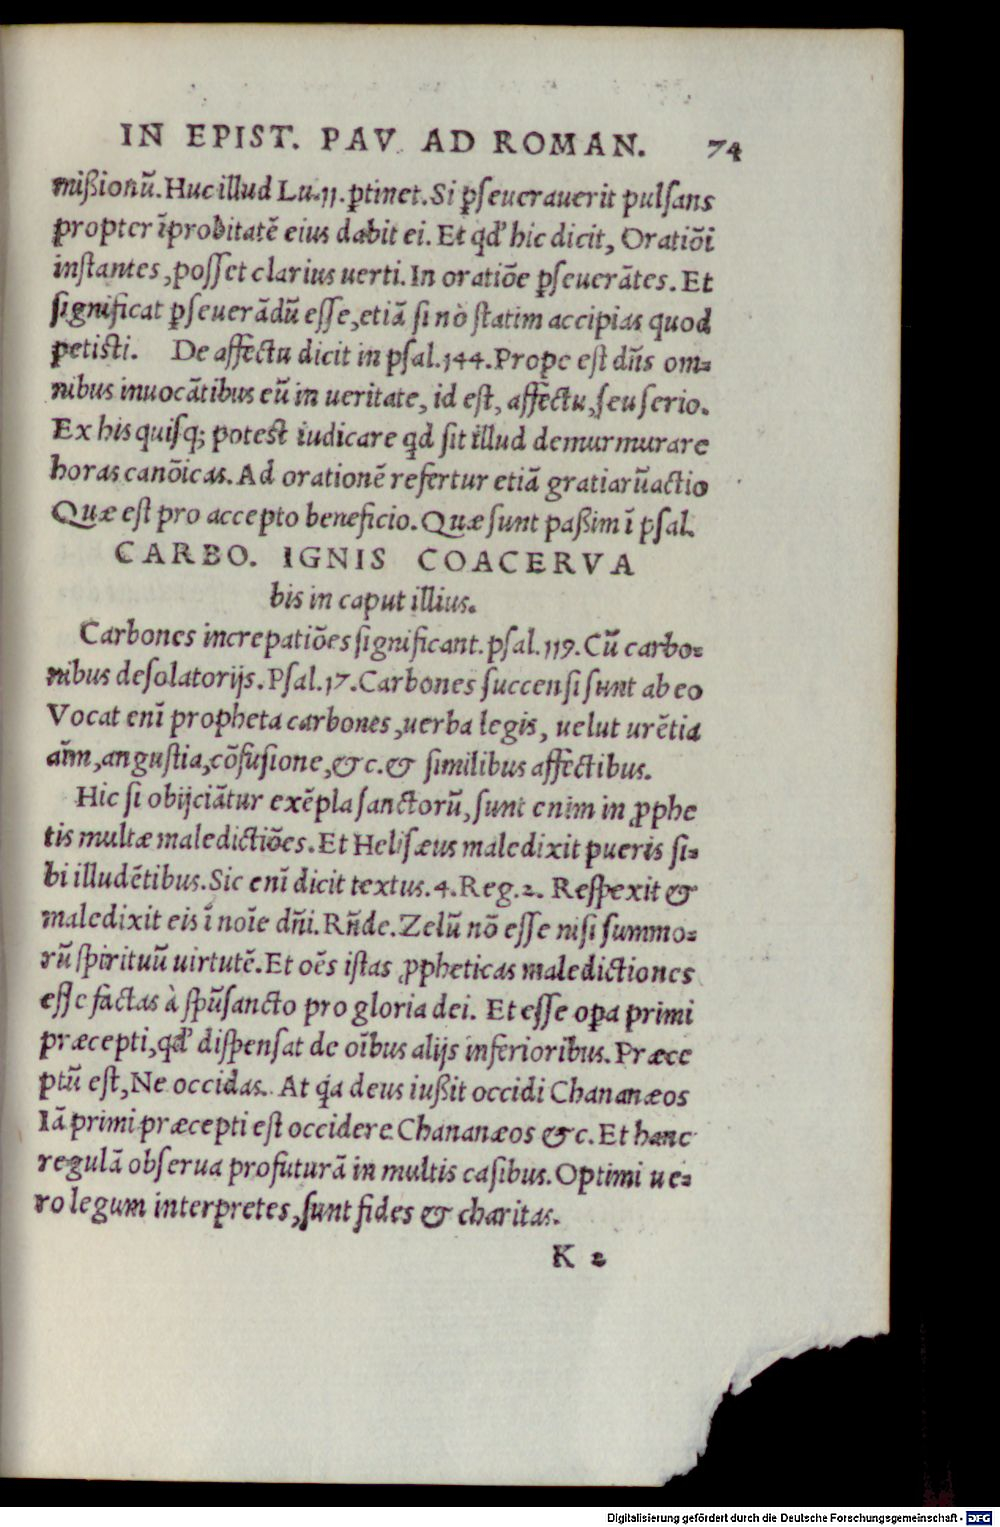 IN EPIST. PAV. AD ROMAN. 74
mißionū. Huc illud Lu.11. ꝑtinet. Si ꝑseuerauerit pulsans
propter īprobitatē eius dabit ei. Et qd' hic dicit, Oratiōi
instantes, posset clarius uerti. In oratiōe ꝑseuerātes. Et
significat ꝑseuerādū esse, etiā si nō statim accipias quod
petisti. De affectu dicit in psal.144. Prope est dn̄s om=
nibus inuocātibus eū in ueritate, id est, affectu, seu serio.
Ex his quisq; potest iudicare qd sit illud demurmurare
horas canōicas. Ad orationē refertur etiā gratiarūactio
Quæ est pro accepto beneficio. Quæ sunt paßim ī psal.
CARBO. IGNIS COACERVA
bis in caput illius.
Carbones increpatiōes significant. psal.119. Cū carbo=
nibus desolatorijs. Psal.17. Carbones succensi sunt ab eo
Vocat enī propheta carbones, uerba legis, uelut urētia
aīm, angustia, cōfusione, &c. & similibus affectibus.
Hic si obijciātur exēpla sanctorū, sunt enim in ꝓphe
tis multæ maledictiōes. Et Helisæus maledixit pueris si=
bi illudētibus. Sic enī dicit textus. 4. Reg. 2. Respexit &
maledixit eis ī noīe dn̄i. Rn̄de. Zelū nō esse nisi summo=
rū spirituū uirtutē. Et oēs istas ꝓpheticas maledictiones
esse factas à spūsancto pro gloria dei. Et esse oꝑa primi
præcepti, qd' dispensat de oībus alijs inferioribus. Præce
ptū est, Ne occidas. At qa deus iußit occidi Chananæos
Iā primi præcepti est occidere Chananæos &c. Et hanc
regulā obserua profuturā in multis casibus. Optimi ue=
ro legum interpretes, sunt fides & charitas.
K 2
Digitalisierung gefördert durch die Deutsche Forschungsgemeinschaft - DFG